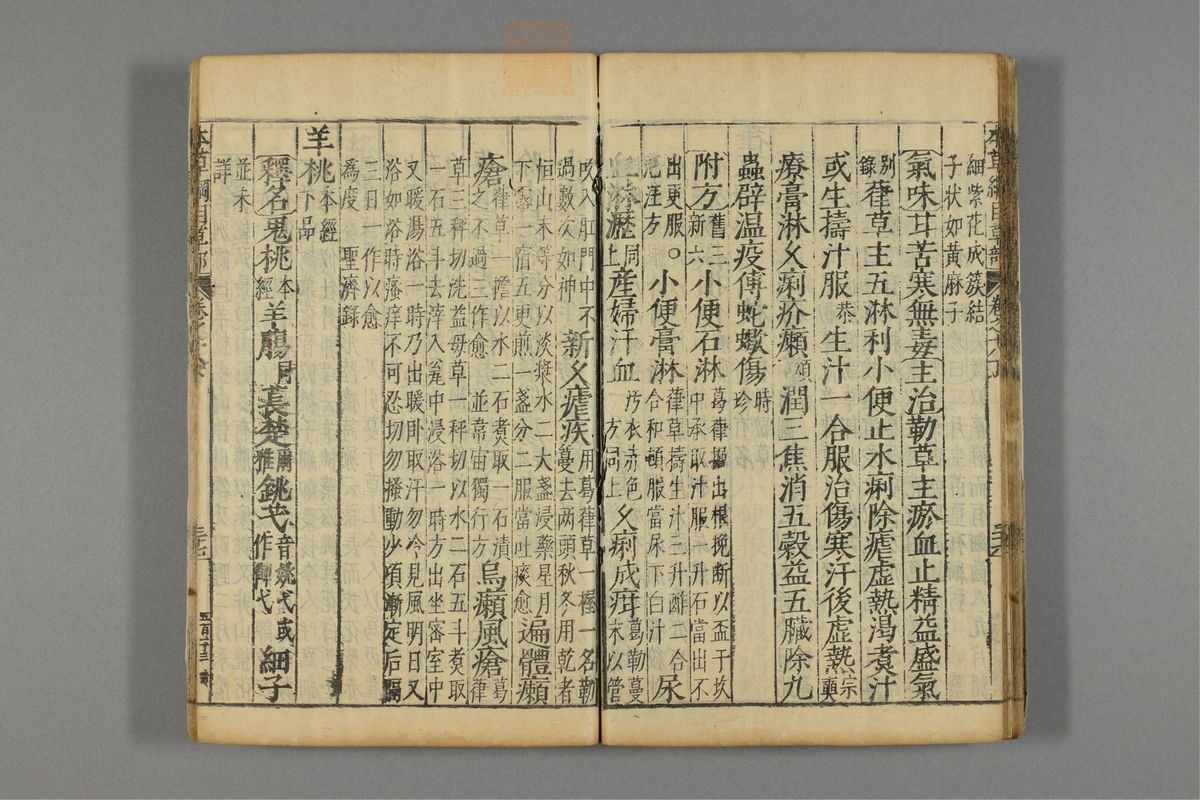 細紫花成簇結
子狀如黃麻子
氣味甘苦寒無毒主治勒草主瘀血止精益盛氣
別錄葎草主五淋利小便止水痢除瘧虛熱渴煮汁
或生擣汁服恭生汁一合服治傷寒汗後虛熱宗奭
療膏淋久痢疥癩頌潤三焦消五穀益五臟除九
蟲辟温疫傅蛇蠍傷時珍
附方舊三新六小便石淋葛葎掘出根挽斷以盃于坎中承取汁服一升石當出不
出更服。小便膏淋葎草擣生汁三升酢二合合和頓服當尿下白汁尿
血淋瀝同上產婦汗血汚衣赤色方同上久痢成疳葛勒蔓末以管
吹入肛門中不過數次如神新久瘧疾用葛葎草一握一名勒蔓去兩頭秋冬用乾者
恒山末等分以淡漿水二大盞浸藥星月下露一宿五更煎一盞分二服當吐痰愈遍體癩
瘡葎草一擔以水二石煮取一石漬之不過三作愈 並韋宙獨行方烏癩風瘡葛葎
草三秤切洗益母草一秤切以水二石五斗煮取
一石五斗去滓入瓮中浸浴一時方出坐密室中
又暖湯浴一時乃出暖卧取汗勿令見風明日又
浴如浴時瘙痒不可忍切勿搔動少頃漸定后隔
三日一作以愈
爲度 聖濟錄
羊桃本經下品
釋名鬼桃本經羊腸同萇楚爾雅銚芅音姚弋或作御弋細子
並未
詳
本草綱目草部
五百二十三